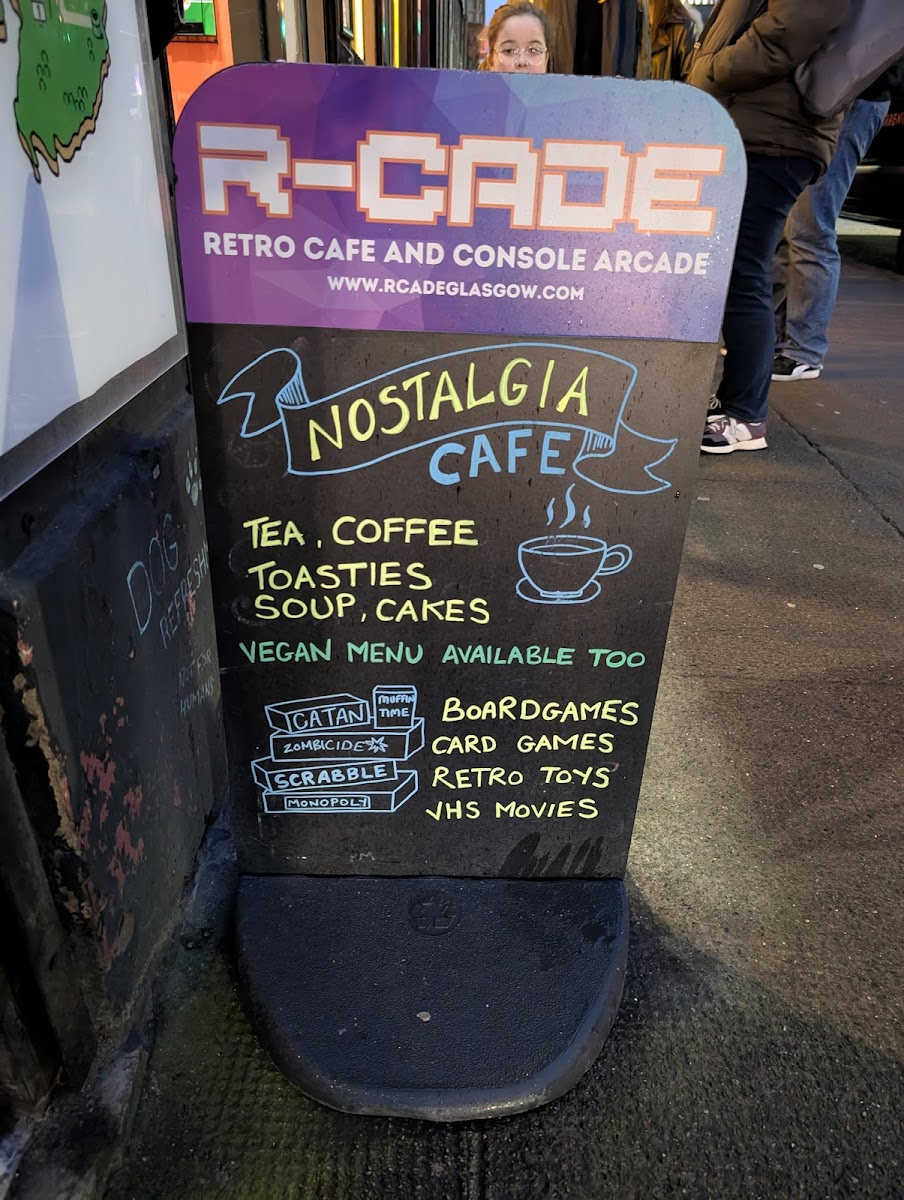 R-CADE
RETRO CAFE AND CONSOLE ARCADE
WWW.RCADEGLASGOW.COM
NOSTALGIA
CAFE
TEA, COFFEE
TOASTIES
SOUP, CAKES
VEGAN MENU AVAILABLE TOO
CATAN
MUFFIN
TIME
ZOMBICIDE
SCRABBLE
MONOPOLY
BOARDGAMES
CARD GAMES
RETRO TOYS
VHS MOVIES
DOG
HUMANS